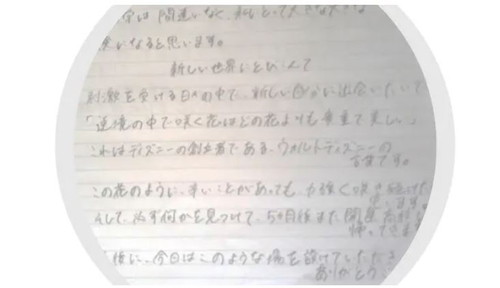 間違いなく、私にとって大きな
になると思います。
新しい世界にとびこんで
刺激を受ける日々の中で、新しい自分に出会いたいで
「逆境の中で咲く花はどの花よりも貴重で美しい。」
これはディズニーの創立者である、ウォルトディズニーの
言葉です。
この花のように、辛いことがあっても、力強く咲き続けた
思います。
そして、必ず何かを見つけて、5ヶ月後また、関西高校に
帰ってきます
後に、今日はこのような場を設けていただき
ありがとう